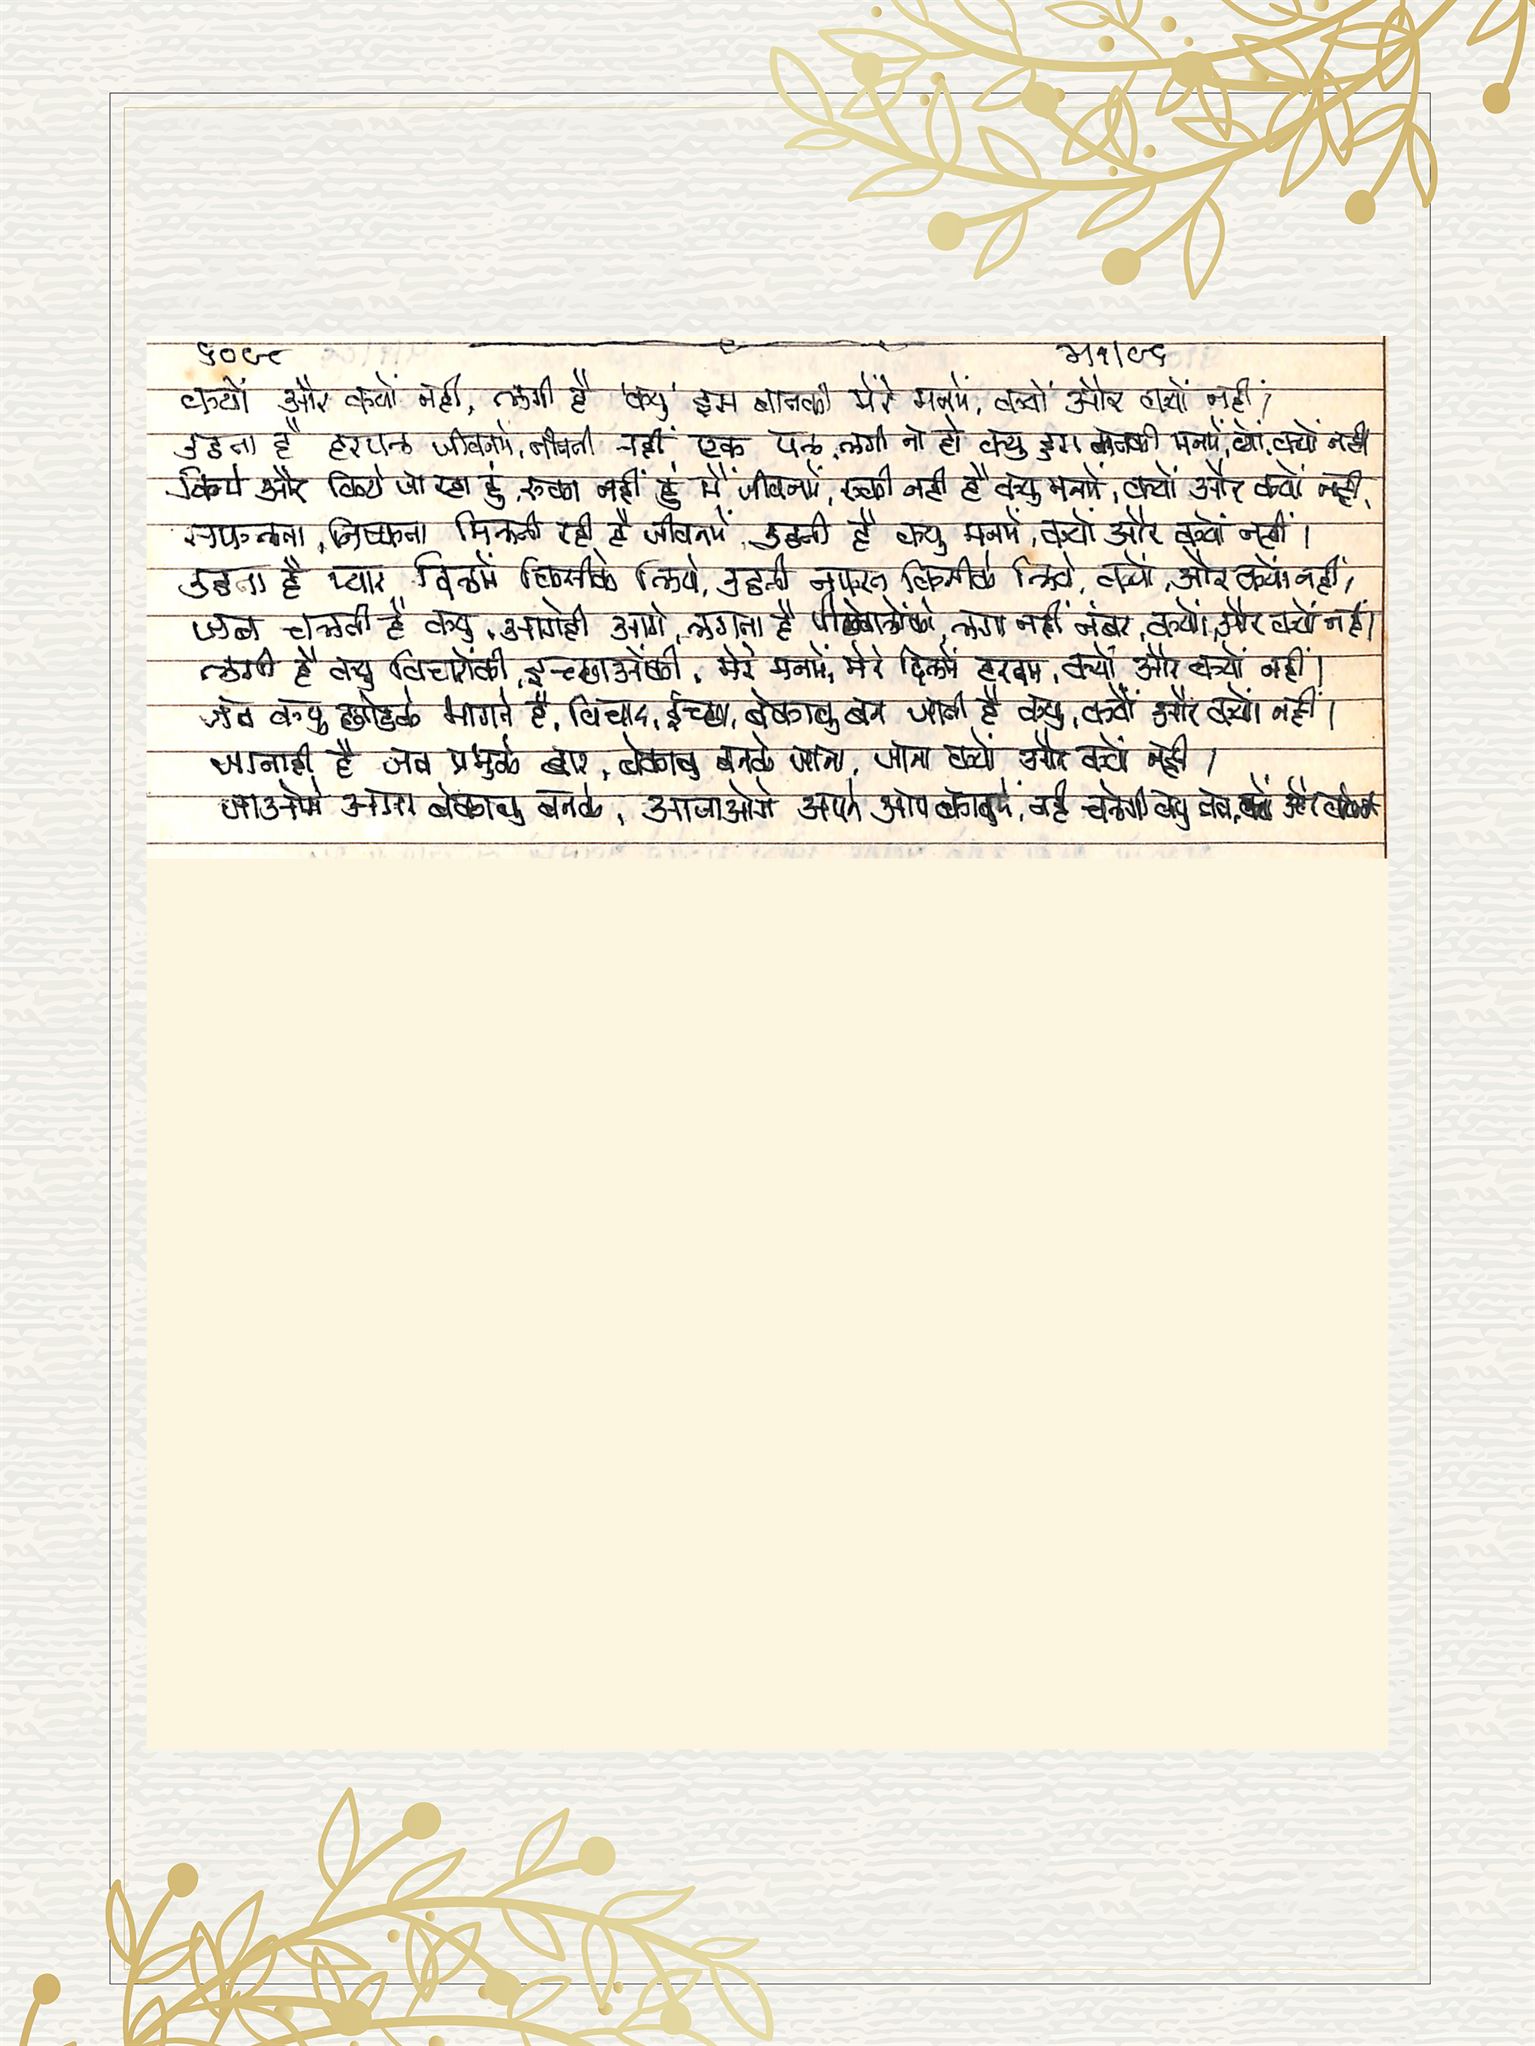 क्यों और क्यों नहीं, लगी है 'क्यु' इस बातकी मेरे मनमें, क्यों और क्यों नहीं।
उठता है हरपल जीवनमें, बीतती नहीं एक पल, लगी ना हो क्यु इस बातकी मनमें, क्यों, क्यों नहीं
किये और किये जा रहा हुं, रुका नहीं हुं मैं जीवनमें, रुकी नही है क्यु मनमें, क्यों और क्यों नही,
सफलता, निष्फलता मिलती रही है जीवनमें, उठती है क्यु मनमें, क्यों और क्यों नहीं।
उठता है प्यार दिलमें किसीके लिये, उठती नफरत किसीके लिये, क्यों, और क्यों नहीं,
जब चलती है क्यु, आगेही आगे, लगता है पीछेवालोंको, लगा नहीं नंबर, क्यों, और क्यों नहीं।
लगी है क्यु विचारोंकी, इच्छाओंकी, मेरे मनमें, मेरे दिलमें हरदम, क्यों और क्यों नहीं।
जब क्यु भागते है, विचार, ईच्छा, बेकाबु बन जाती है क्यु, क्यों और क्यों नहीं।
जानाही है जब प्रभुके द्वार, बेकाबु बनके जाना, जाना क्यों और क्यों नही।
जाओगे अगर बेकाबु बनके, आजाओगे अपने आप काबुमें, वहाँ चलेगी क्यु तब, क्यों और